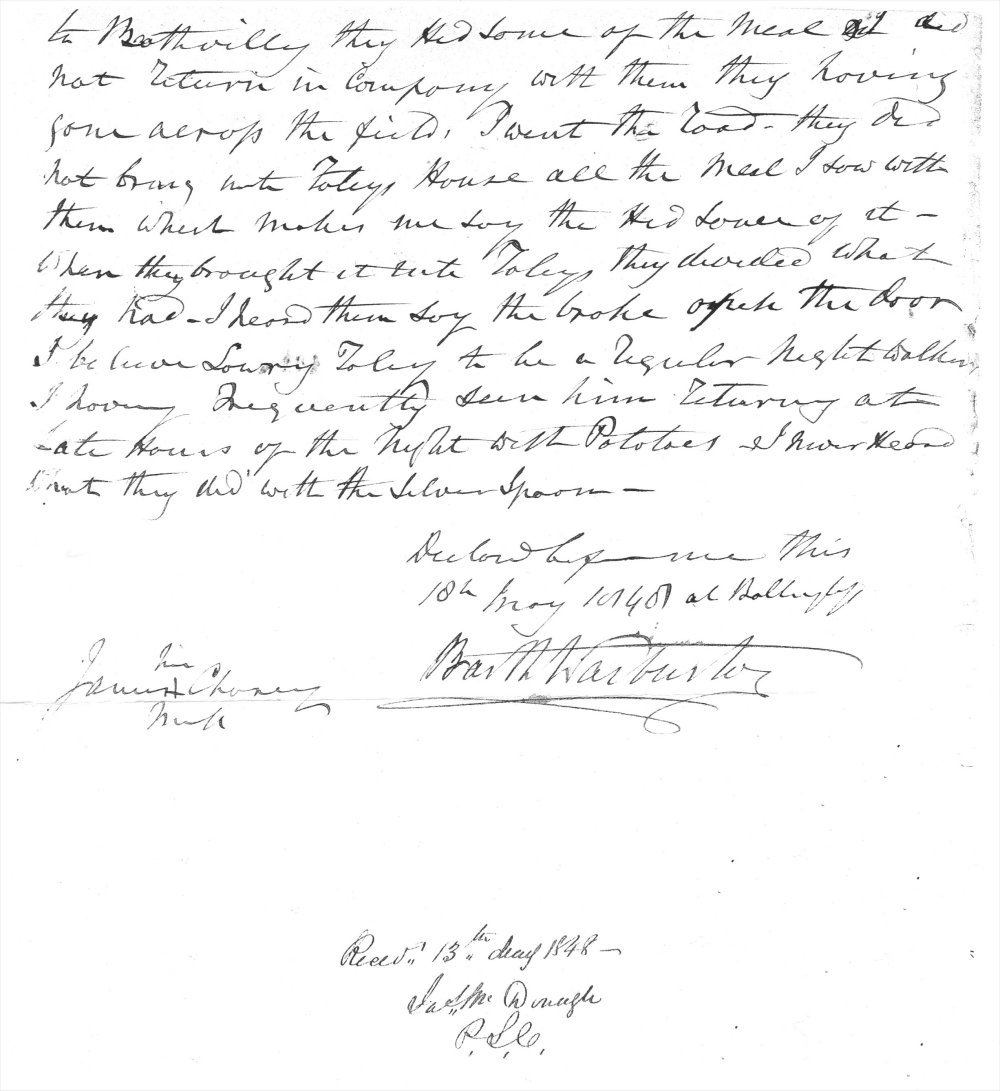 to Boothvilly they Hid some of the Meal I did
not return in Company with them they having
gone across the field, I went the road - they did
not bring into Foleys House all the Meal I saw with
them which makes me say the Hid some of it -
When they brought it into Foleys they devided what
they had - I heard them say the broke open the door
I beleive Lowry Foley to be a regular Night Walker
I having Frequently seen him returning at
Late Hours of the Night with Potatoes - I never Heard
What they did with the Silver Spoon -
Declared before me this
18th May 1848 at
his
James X
Mark
Barth Warburton
Recd. 13th May 1848 -
Jas. Mc Donagh
P.S.C.